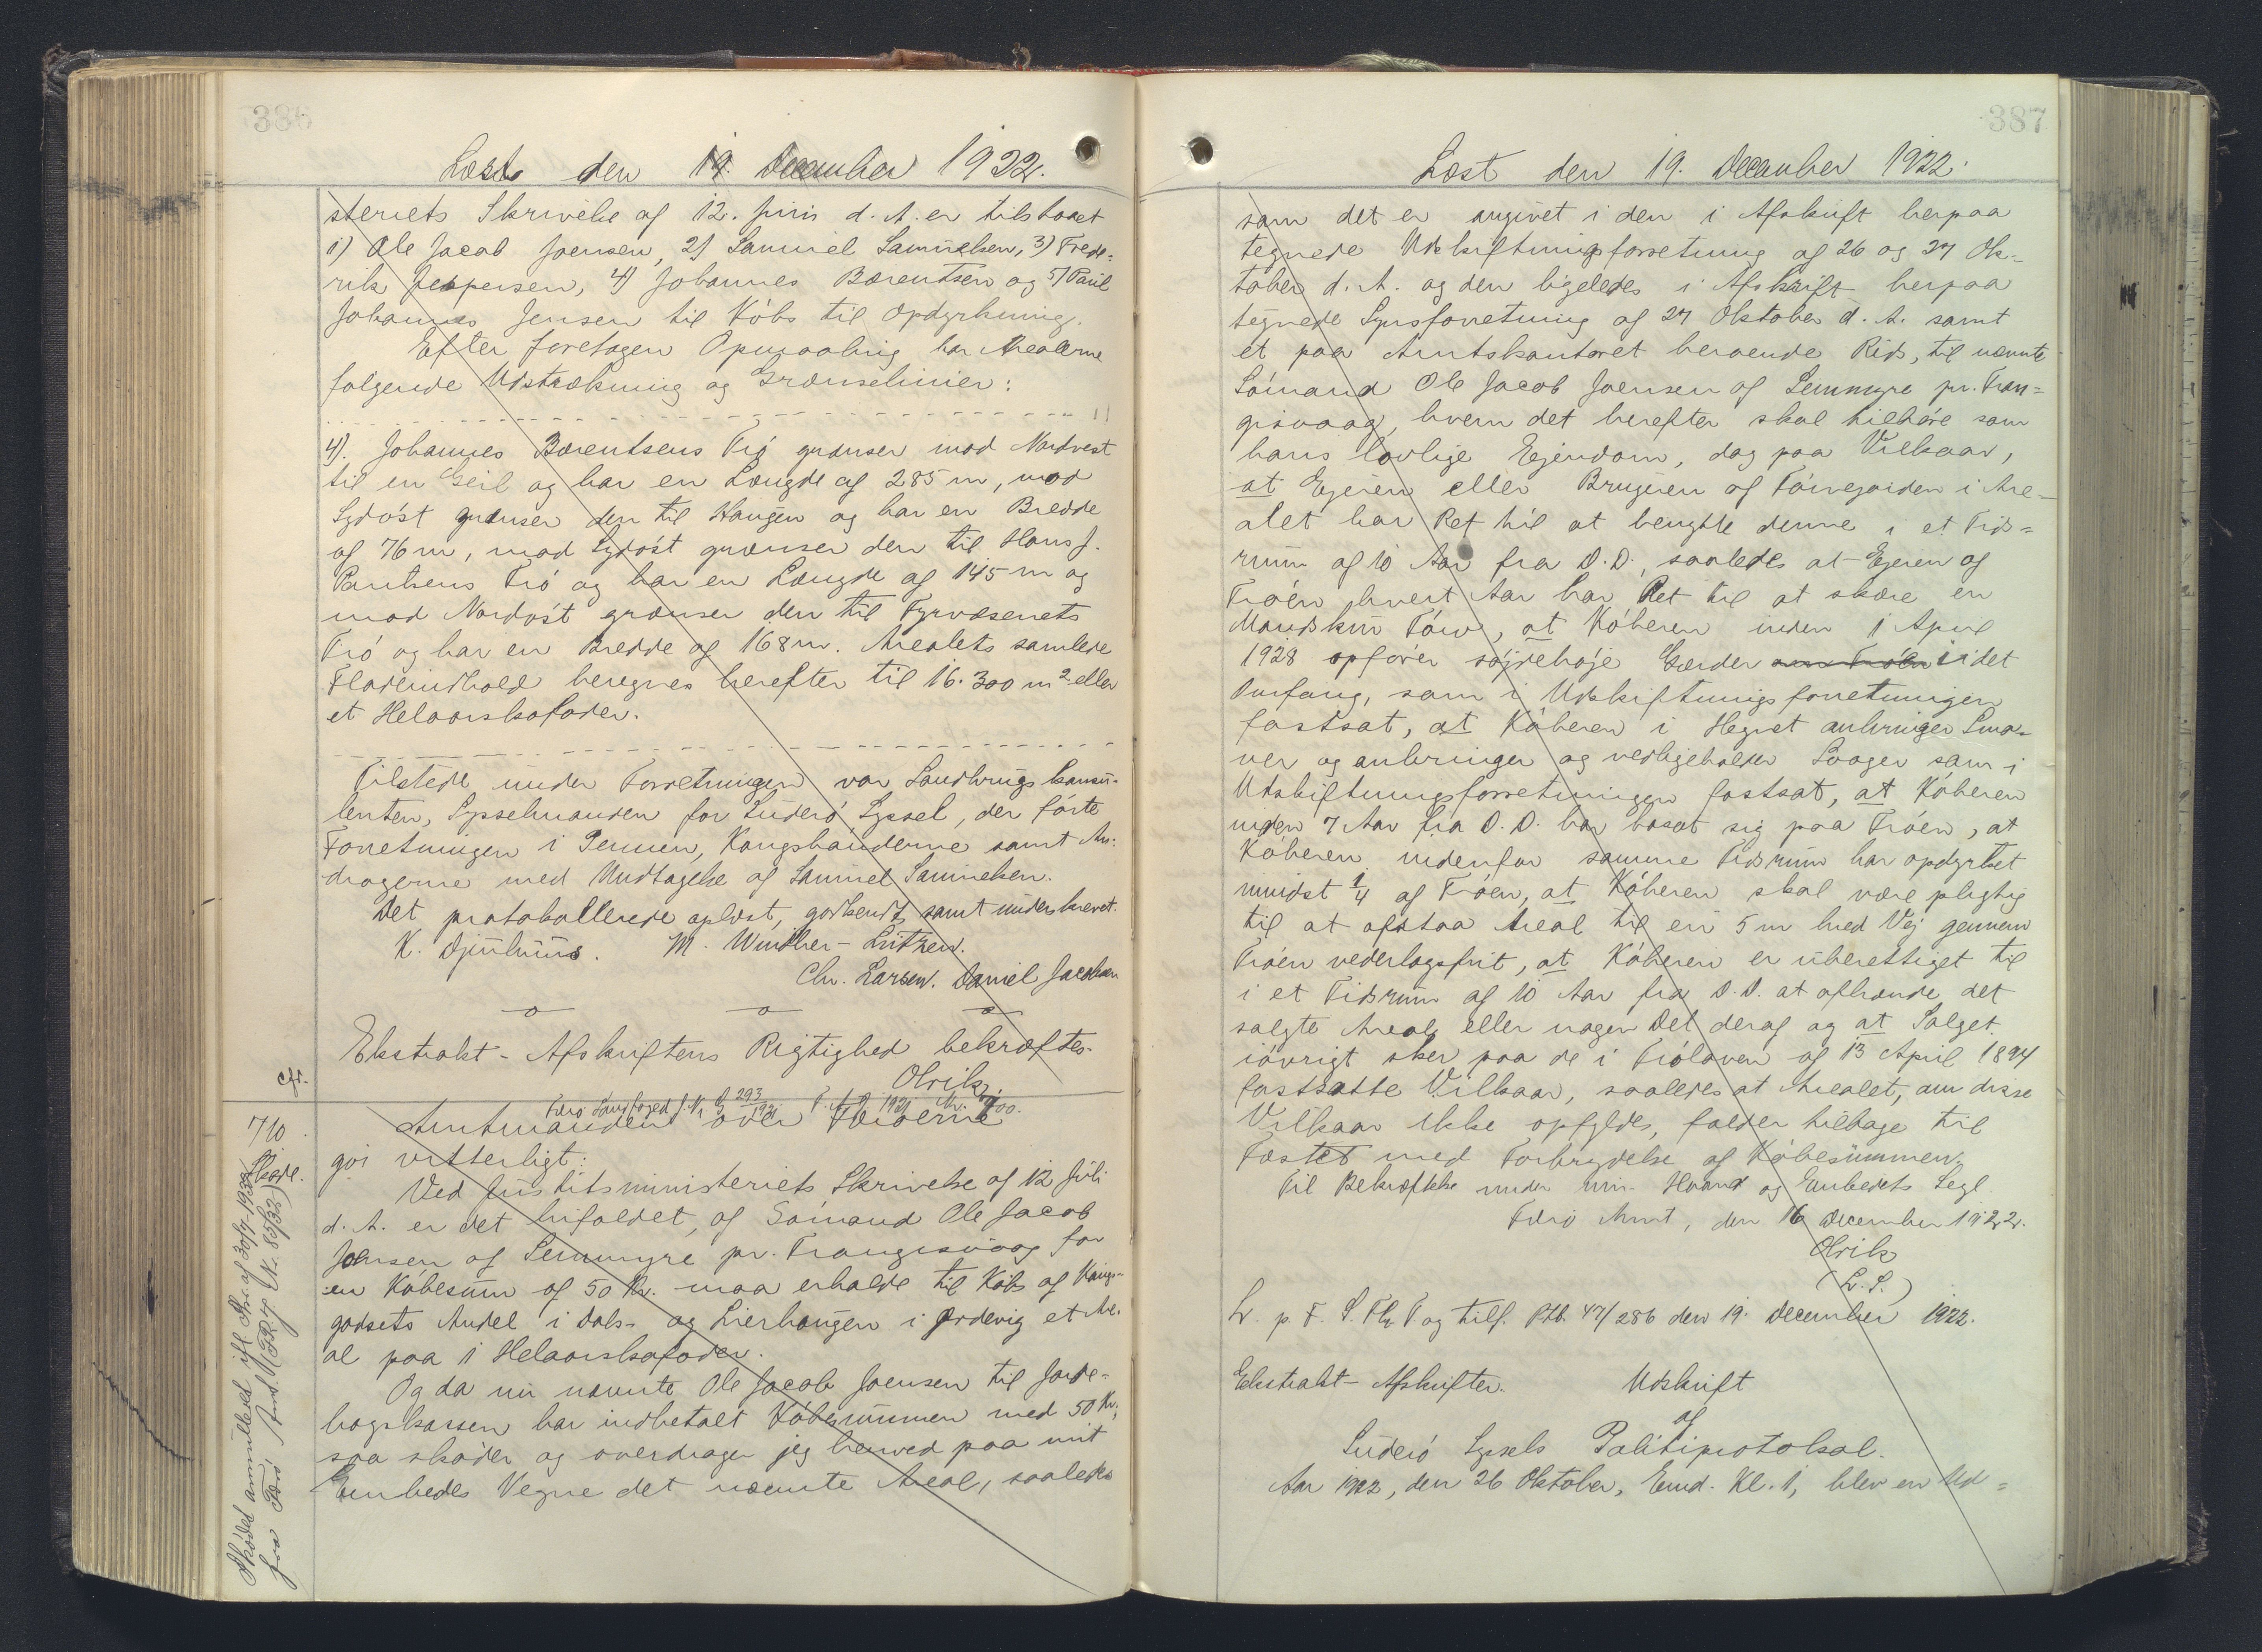 386
Læst den 19. December 1922.
steriets Skrivelse af 12. Juni d. A. er tilstaaet
1) Ole Jacob Joensen, 2) Samuel Samuelsen, 3) Frede-
rik Jespersen, 4) Johannes Bærentsen og 5) Paul
Johannes Jensen til Købs til Opdyrkning.
Efter foretagen Opmaaling har Arealerne
følgende Udstrækning og Grænselinier:
4). Johannes Bærentsens Trø grænser mod Nordvest
til en Geil og har en Længde af 285 m, mod
Sydøst grænser den til Haugen og har en Bredde
af 76 m, mod Sydøst grænser den til Hans J.
Poulsens Trø og har en Længde af 145 m og
mod Nordøst grænser den til Fyrvæsenets
Trø og har en Bredde af 168 m. Arealets samlede
Fladeindhold beregnes herefter til 16.300 m2 eller
et Helaarskofoder.
Tilstede under Forretningen var Landbrugskonsu-
lenten, Sysselmanden for Suderø Syssel, der førte
Forretningen i Pennen, Kongsbønderne samt An-
dragerne med Undtagelse af Samuel Samuelsen.
Det protokollerede oplæst, godkendt samt underskrevet.
K. Djurhuus. M. Winther-Lützen.
Chr. Larsen. Daniel Jacobsen
Ekstrakt-Afskriftens Rigtighed bekræftes.
Olrik
cfr.
710
Skøde.
Færø Landfoged J. Nr. 293 1921 Kr. 400.
Amtmanden over Færøerne
gør vitterligt:
Ved Justitsministeriets Skrivelse af 12 Juli
d. A. er det bifaldet, af Sømand Ole Jacob
Joensen af Lemmyre pr. Trangisvaag for
en Købesum af 50 Kr. maa erholde til Købs af Kongs-
godsets Andel i Dals- og Lierhaugen i Ørdevig et Are-
al paa 1 Helaarskofoder.
Og da nu nævnte Ole Jacob Joensen til Jorde-
bogskassen har indbetalt Købesummen med 50 Kr.,
saa skøder og overdrager jeg herved paa mit
Embedes Vegne det nævnte Areal, saaledes
Skødet annulleret ifl. Skr. af 30/7 1932
fra Færø Amt (J. 85/32)
387
Læst den 19. December 1922.
som det er angivet i den i Afskrift herpaa
tegnede Udskiftningsforretning af 26 og 27 Ok-
tober d. A. og den ligeledes i Afskrift herpaa
tegnede Synsforretning af 27 Oktober d. A. samt
et paa Amtskontoret beroende Rids, til nævnte
Sømand Ole Jacob Joensen af Lemmyre pr. Tran-
gisvaag, hvem det herefter skal tilhøre som
hans lovlige Ejendom, dog paa Vilkaar,
at Ejeren eller Brugeren af Tørvejorden i Are-
alet har Ret til at benytte denne i et Tids-
rum af 10 Aar fra D.D., saaledes at Ejeren af
Trøen hvert Aar har Ret til at skære en
Mandskur Tørv, at Køberen inden 1 April
1928 opfører søjdehøje Gærder om Trøen i det
Omfang, som i Udskiftningsforretningen
fastsat, at Køberen i Hegnet anbringer Smø-
ver og anbringer og vedligeholder Laager som i
Udskiftningsforretningen fastsat, at Køberen
inden 7 Aar fra D.D. har bosat sig paa Trøen, at
Køberen indenfor samme Tidsrum har opdyrket
mindst 1/4 af Trøen, at Køberen skal være pligtig
til at afstaa Areal til en 5 m bred Vej gennem
Trøen vederlagsfrit, at Køberen er uberettiget til
i et Tidsrum af 10 Aar fra D.D. at afhænde det
solgte Areal eller nogen Del deraf og at Salget
iøvrigt sker paa de i Trøloven af 13 April 1894
fastsatte Vilkaar, saaledes at Arealet, om disse
Vilkaar ikke opfyldes, falder tilbage til
Fæstet med Fortrydelse af Købesummen.
Til Bekræftelse under min Haand og Embedets Segl.
Færø Amt, den 16 December 1922.
Olrik
(L. S.)
L. p. F. S. Th. P. og tilf. Ptb. 47/286 den 19. December 1922.
Ekstrakt-Afskrifter. Udskrift
af
Suderø Syssels Politiprotokol.
Aar 1922, den 26 Oktober, Emd. Kl. 1, blev en Ud-